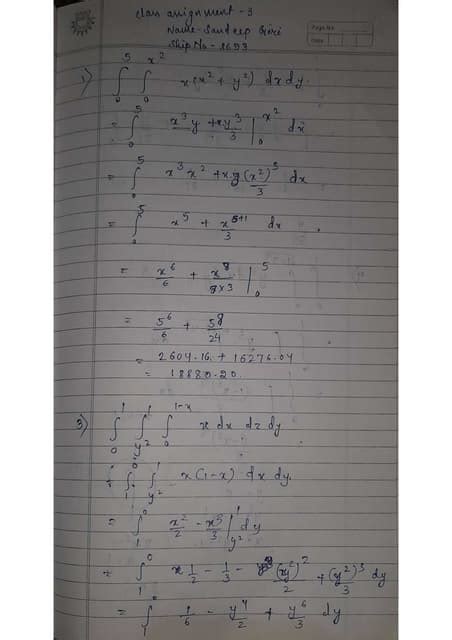 class assignment - 3
Name - Sandeep Giri
Ship No - 8693
Page No.
Date
1) ∫₀⁵ ∫₀^(x²) x(x² + y²) dx dy
= ∫₀⁵ x³y + xy³/3 |₀^(x²) dx
= ∫₀⁵ x³x² + x(x²)³/3 dx
= ∫₀⁵ x⁵ + x^(6+1)/3 dx
= x⁶/6 + x⁸/(8×3) |₀⁵
= 5⁶/6 + 5⁸/24
= 2604.16 + 16276.04
= 18880.20
3) ∫₀¹ ∫_(y²)^1 ∫₀^(1-x) x dx dz dy
∫₁⁰ ∫_(y²)^1 x(1-x) dx dy
= ∫₁⁰ x²/2 - x³/3 |_(y²)^1 dy
= ∫₁⁰ 1/2 - 1/3 - (y²)²/2 + (y²)³/3 dy
= ∫₁⁰ 1/6 - y⁴/2 + y⁶/3 dy